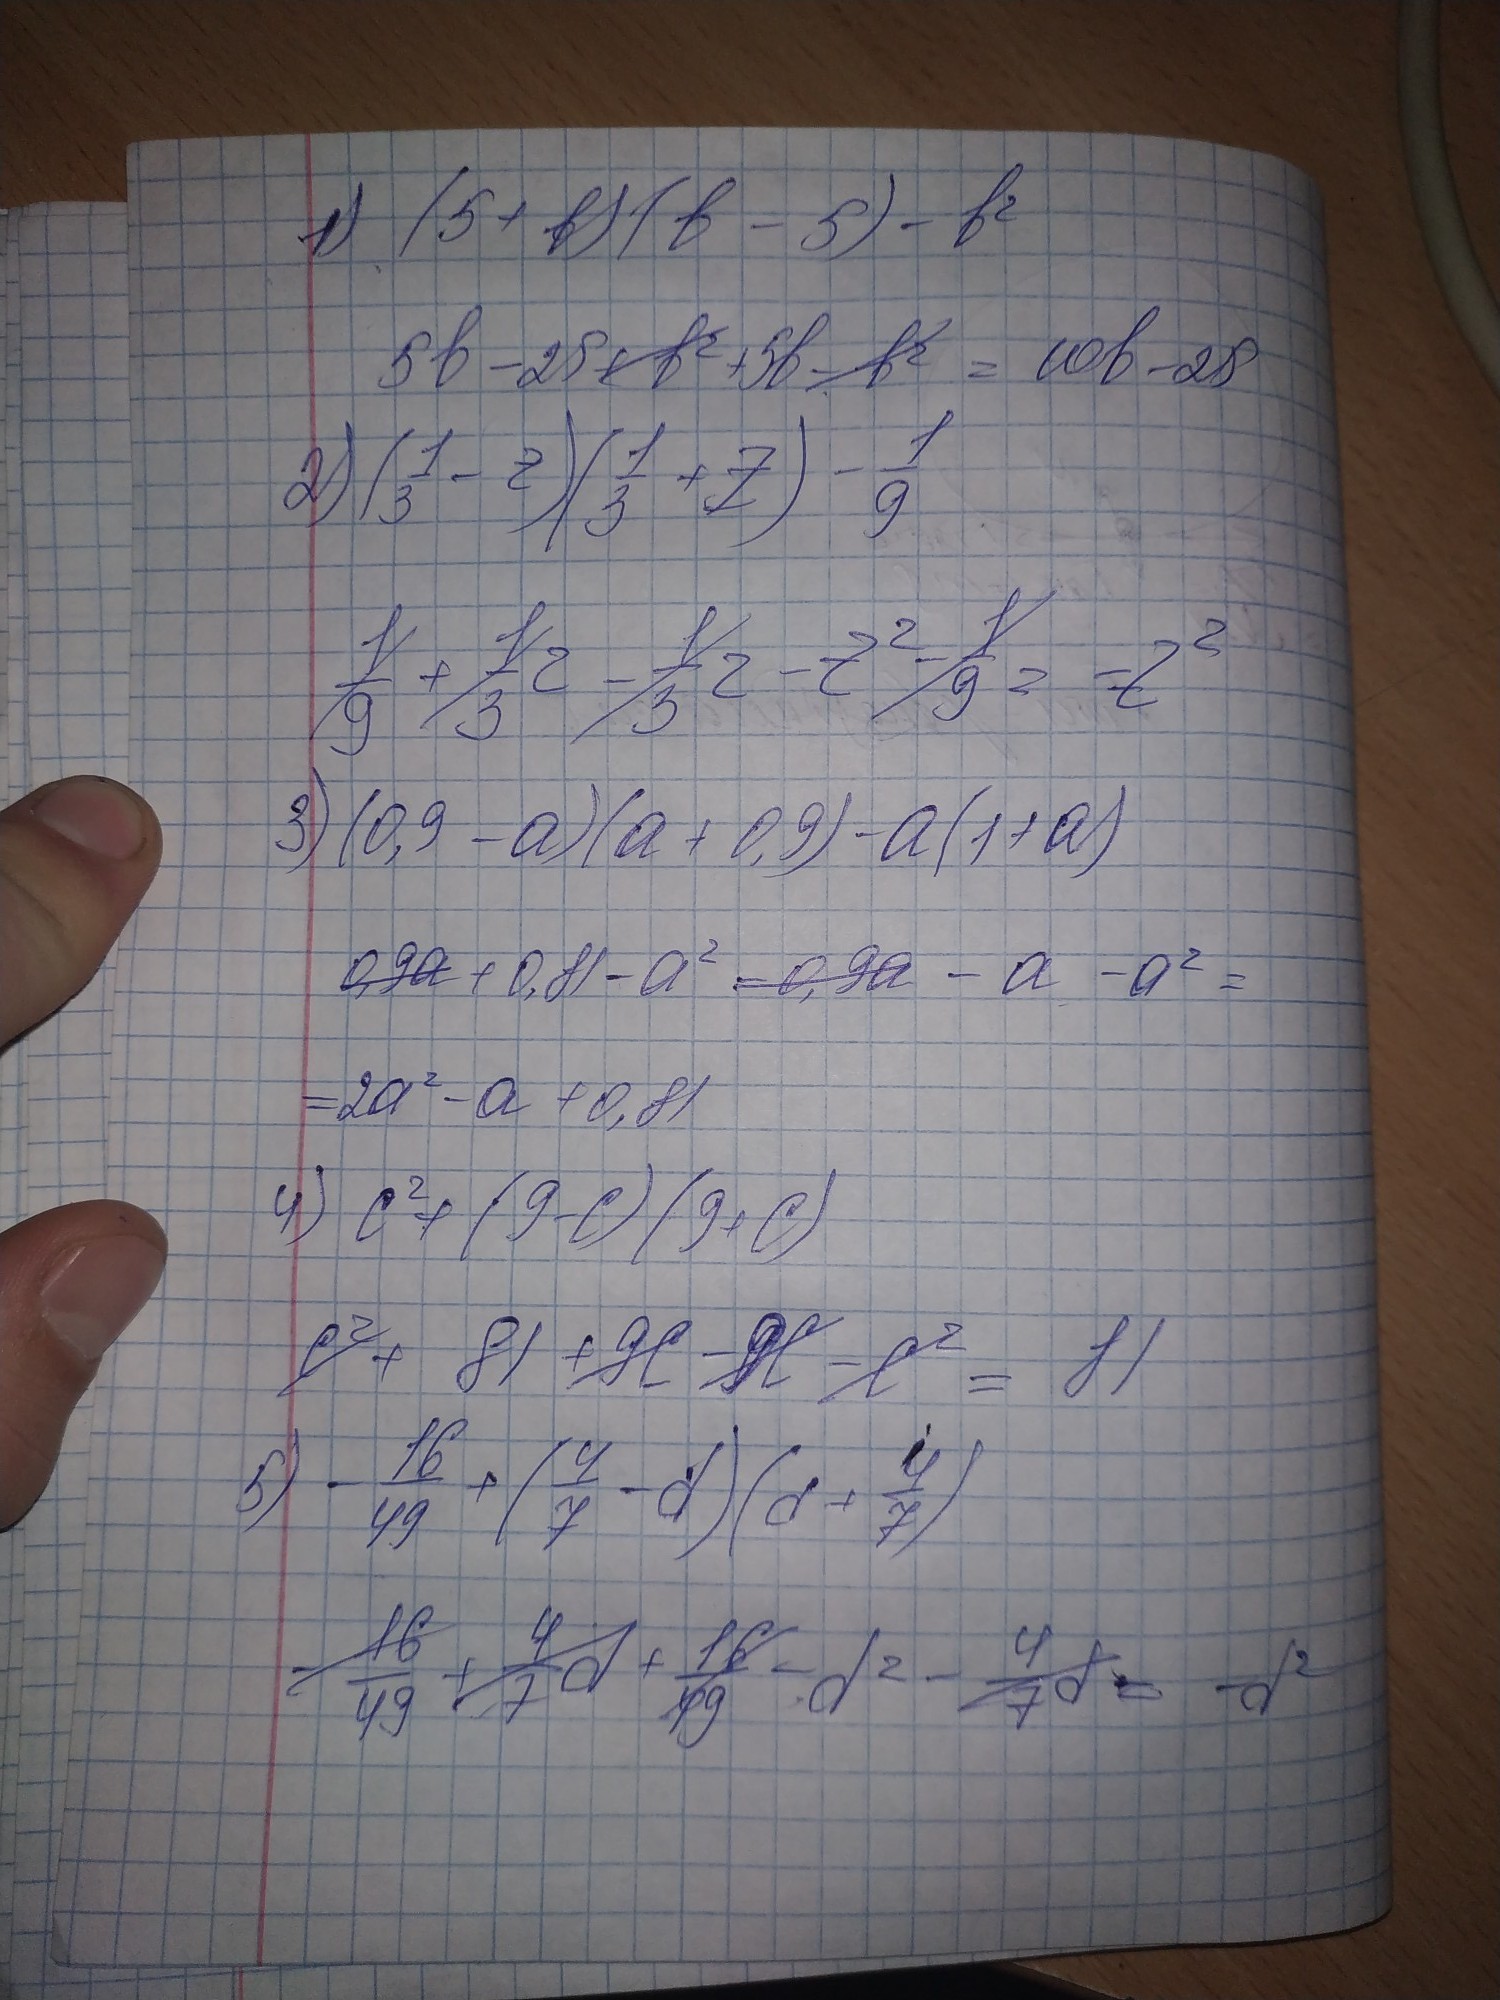 1) (5 + b)(b - 5) - b²
5b - 25 + b² + 5b - b² = 10b - 25
2) (1/3 - z)(1/3 + z) - 1/9
1/9 + 1/3 z - 1/3 z - z² - 1/9 = -z²
3) (0,9 - a)(a + 0,9) - a(1 + a)
0,9a + 0,81 - a² - 0,9a - a - a² =
= 2a² - a + 0,81
4) c² + (9 - c)(9 + c)
c² + 81 + 9c - 9c - c² = 81
5) - 16/49 + (4/7 - d)(d + 4/7)
- 16/49 + 4/7 d + 16/49 - d² - 4/7 d = -d²